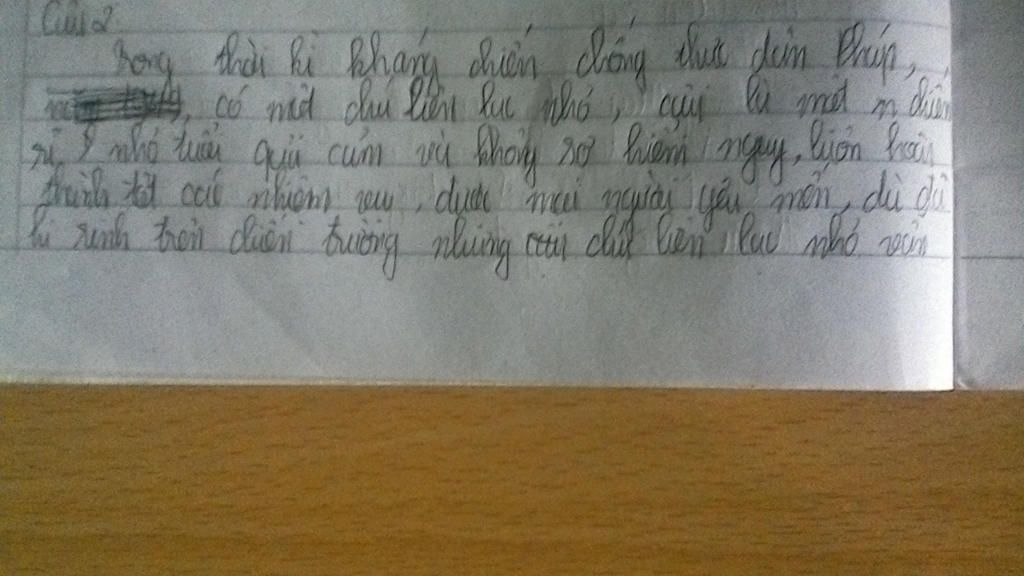 Câu 2
Trong thời kì kháng chiến chống thực dân Pháp,
có một chú liên lạc nhỏ, cậu là một chiến
sĩ nhỏ tuổi quả cảm và không sợ hiểm nguy, luôn hoàn
thành tốt các nhiệm vụ, được mọi người yêu mến, dù đã
hi sinh trên chiến trường nhưng chú liên lạc nhỏ vẫn